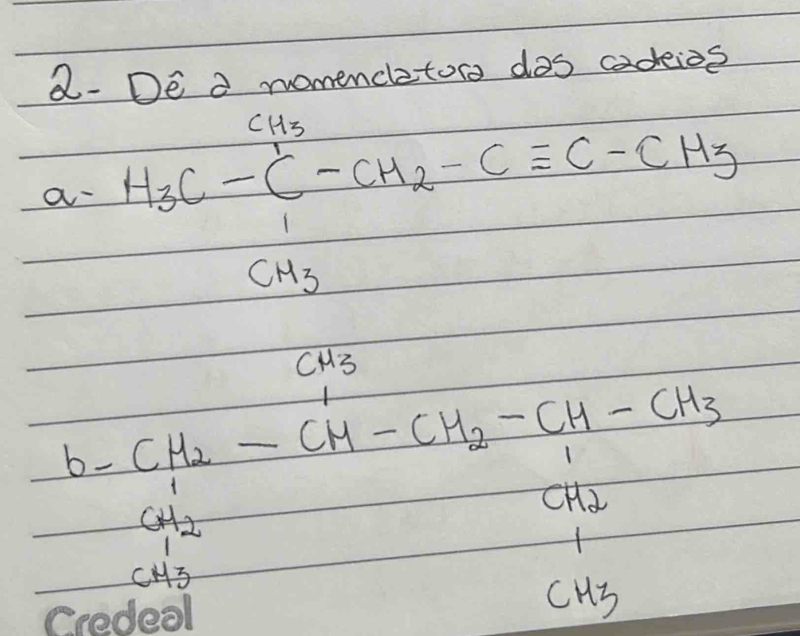 2- Dê a nomenclatura das cadeias
CH3
a- H3C - C - CH2 - C ≡ C - CH3
CH3
CH3
b- CH2 - CH - CH2 - CH - CH3
CH2 CH2
CH3 CH3
Credeal